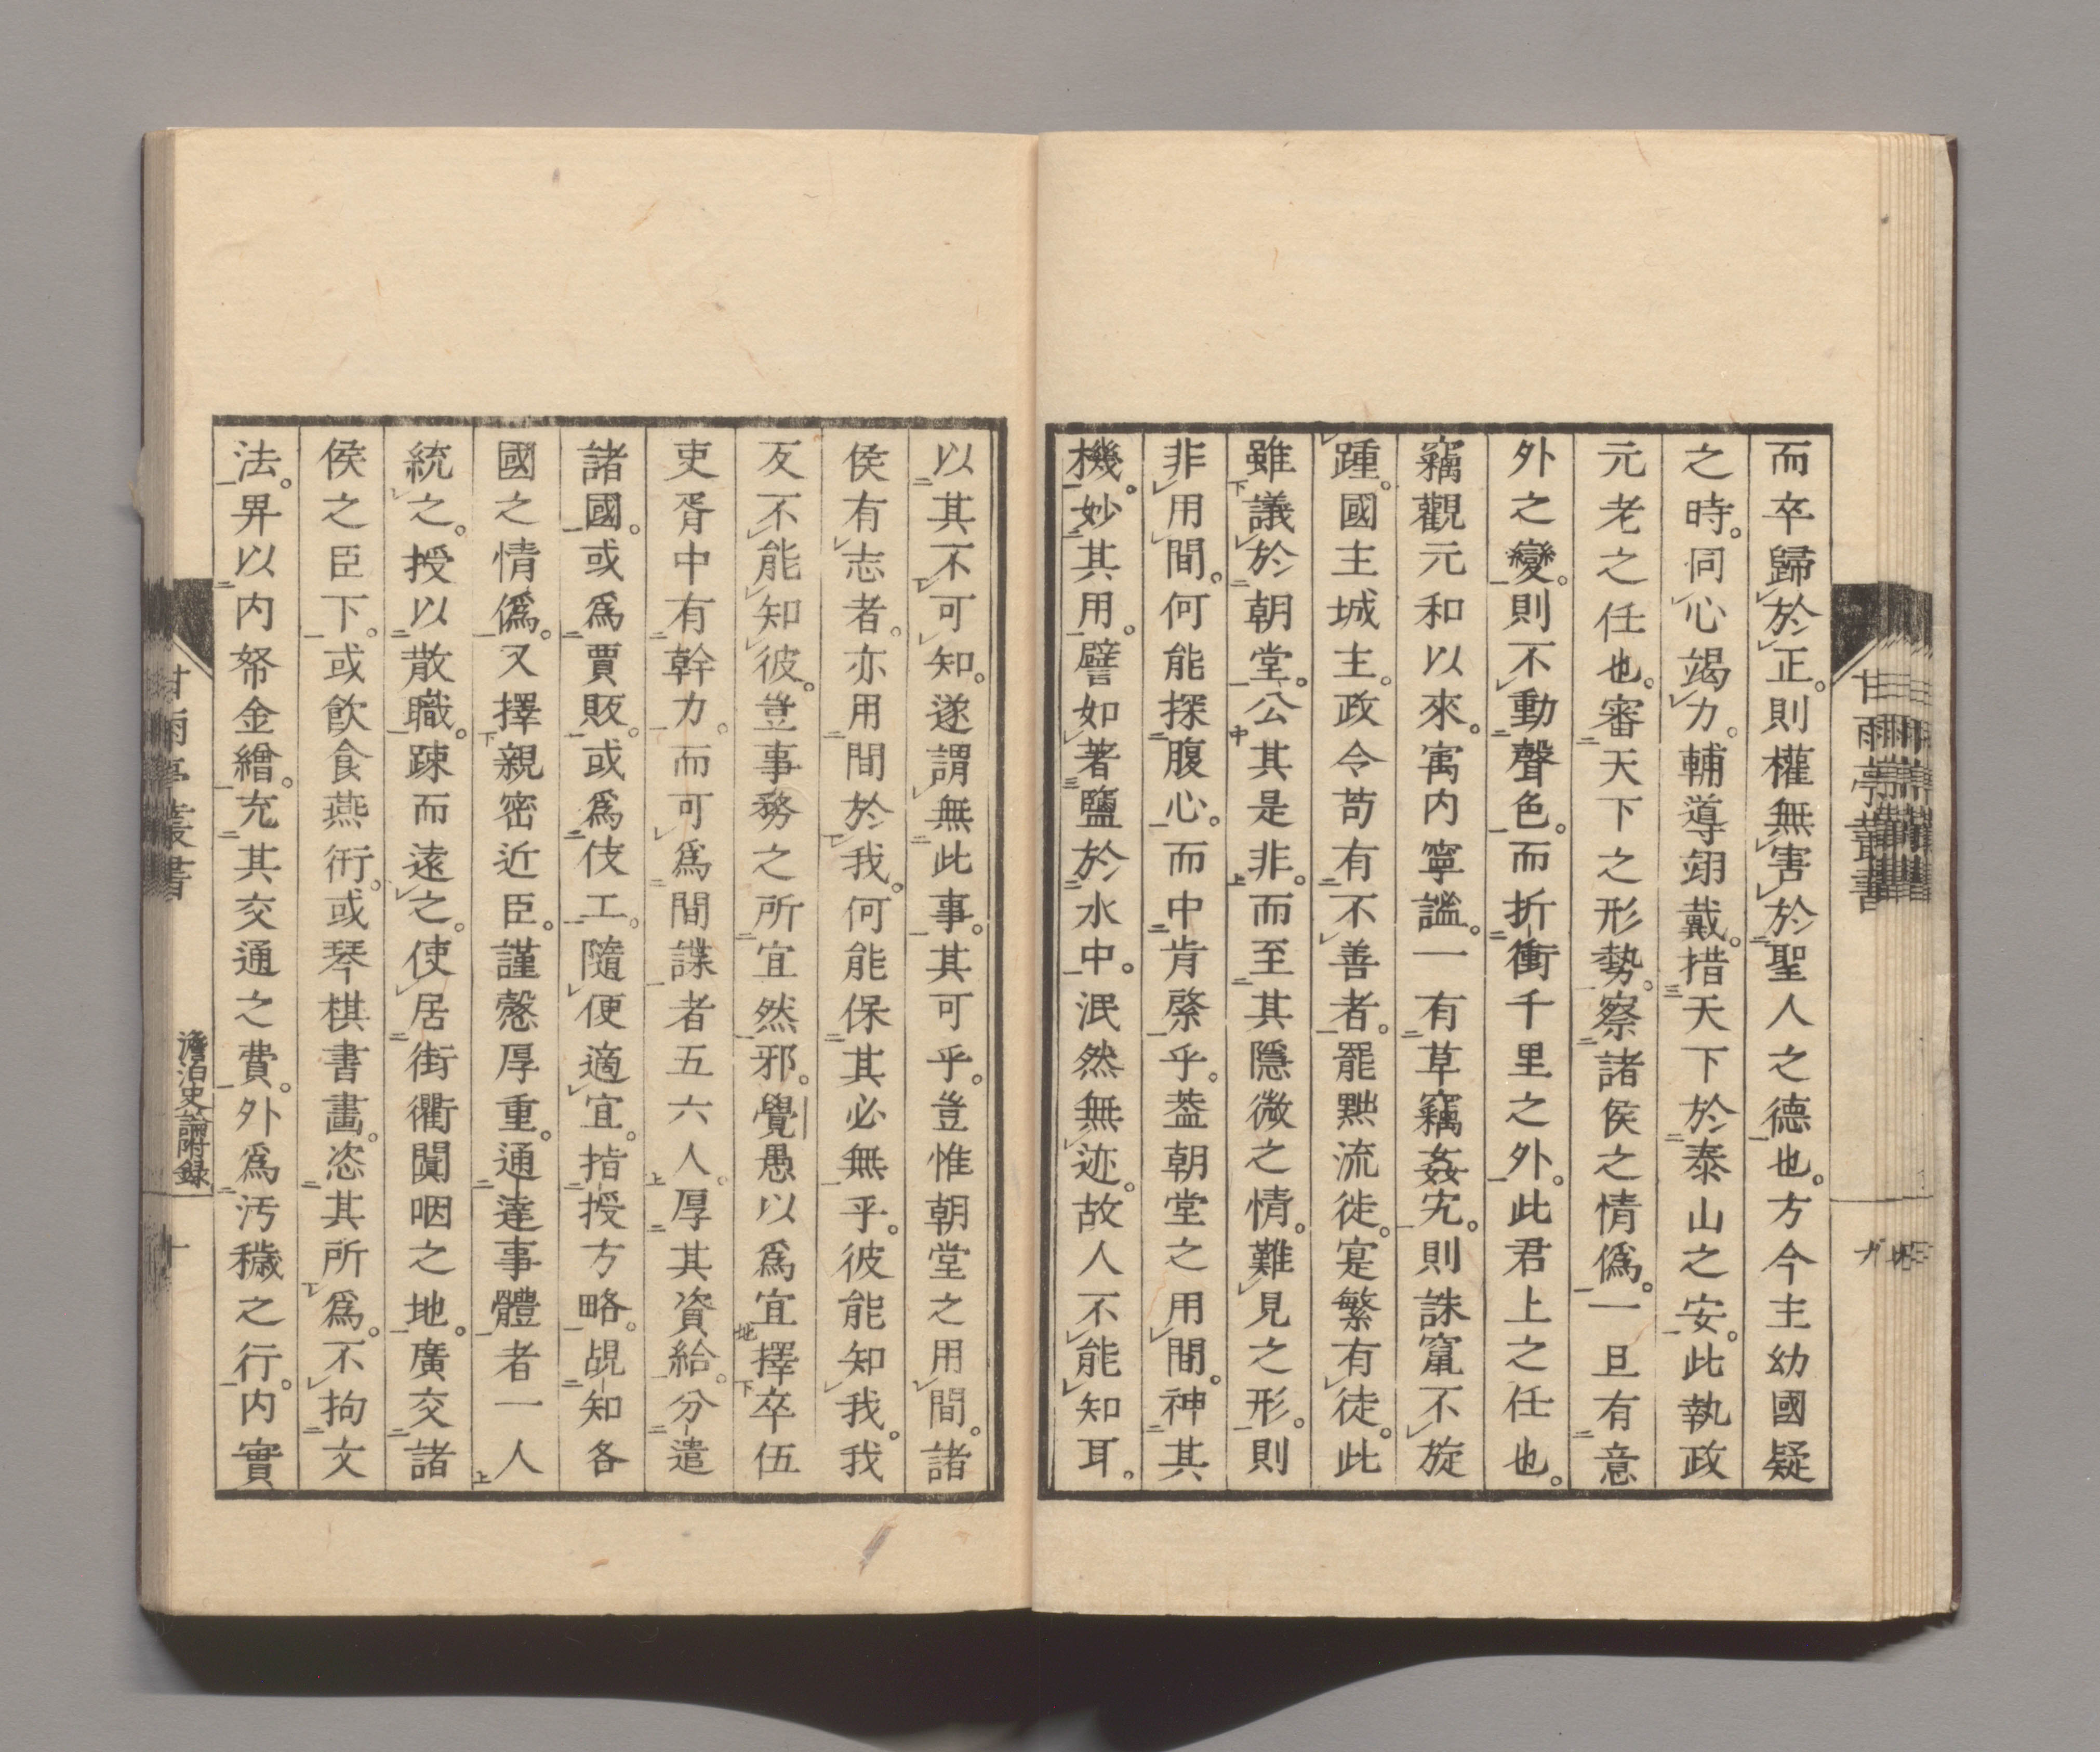 而卒歸於正。則權無害於聖人之德也。方今主幼國疑
之時。同心竭力。輔導翊戴。措天下於泰山之安。此執政
元老之任也。審天下之形勢。察諸侯之情僞。一旦有意
外之變。則不動聲色。而折衝千里之外。此君上之任也。
竊觀元和以來。寓內寧謐。一有草竊姦宄。則誅竄不旋
踵。國主城主。政令苟有不善者。罷黜流徙。寔繁有徒。此
雖議於朝堂。公其是非。而至其隱微之情。難見之形。則
非用間。何能探腹心。而中肯綮乎。葢朝堂之用間。神其
機。妙其用。譬如著鹽於水中。泯然無迹。故人不能知耳。
以其不可知。遂謂無此事。其可乎。豈惟朝堂之用間。諸
侯有志者。亦用間於我。何能保其必無乎。彼能知我。我
反不能知彼。豈事務之所宜然邪。覺愚以爲宜擇卒伍
吏胥中有幹力。而可爲間諜者五六人。厚其資給。分遣
諸國。或爲賈販。或爲伎工。隨便適宜。指授方略。覘知各
國之情僞。又擇親密近臣。謹愨厚重。通達事體者一人
統之。授以散職。踈而遠之。使居街衢闐咽之地。廣交諸
侯之臣下。或飮食燕衎。或琴棋書畵。恣其所爲。不拘文
法。畀以內帑金繒。充其交通之費。外爲汚穢之行。內實
甘雨亭叢書
九
甘雨亭叢書
澹泊史論附錄
十